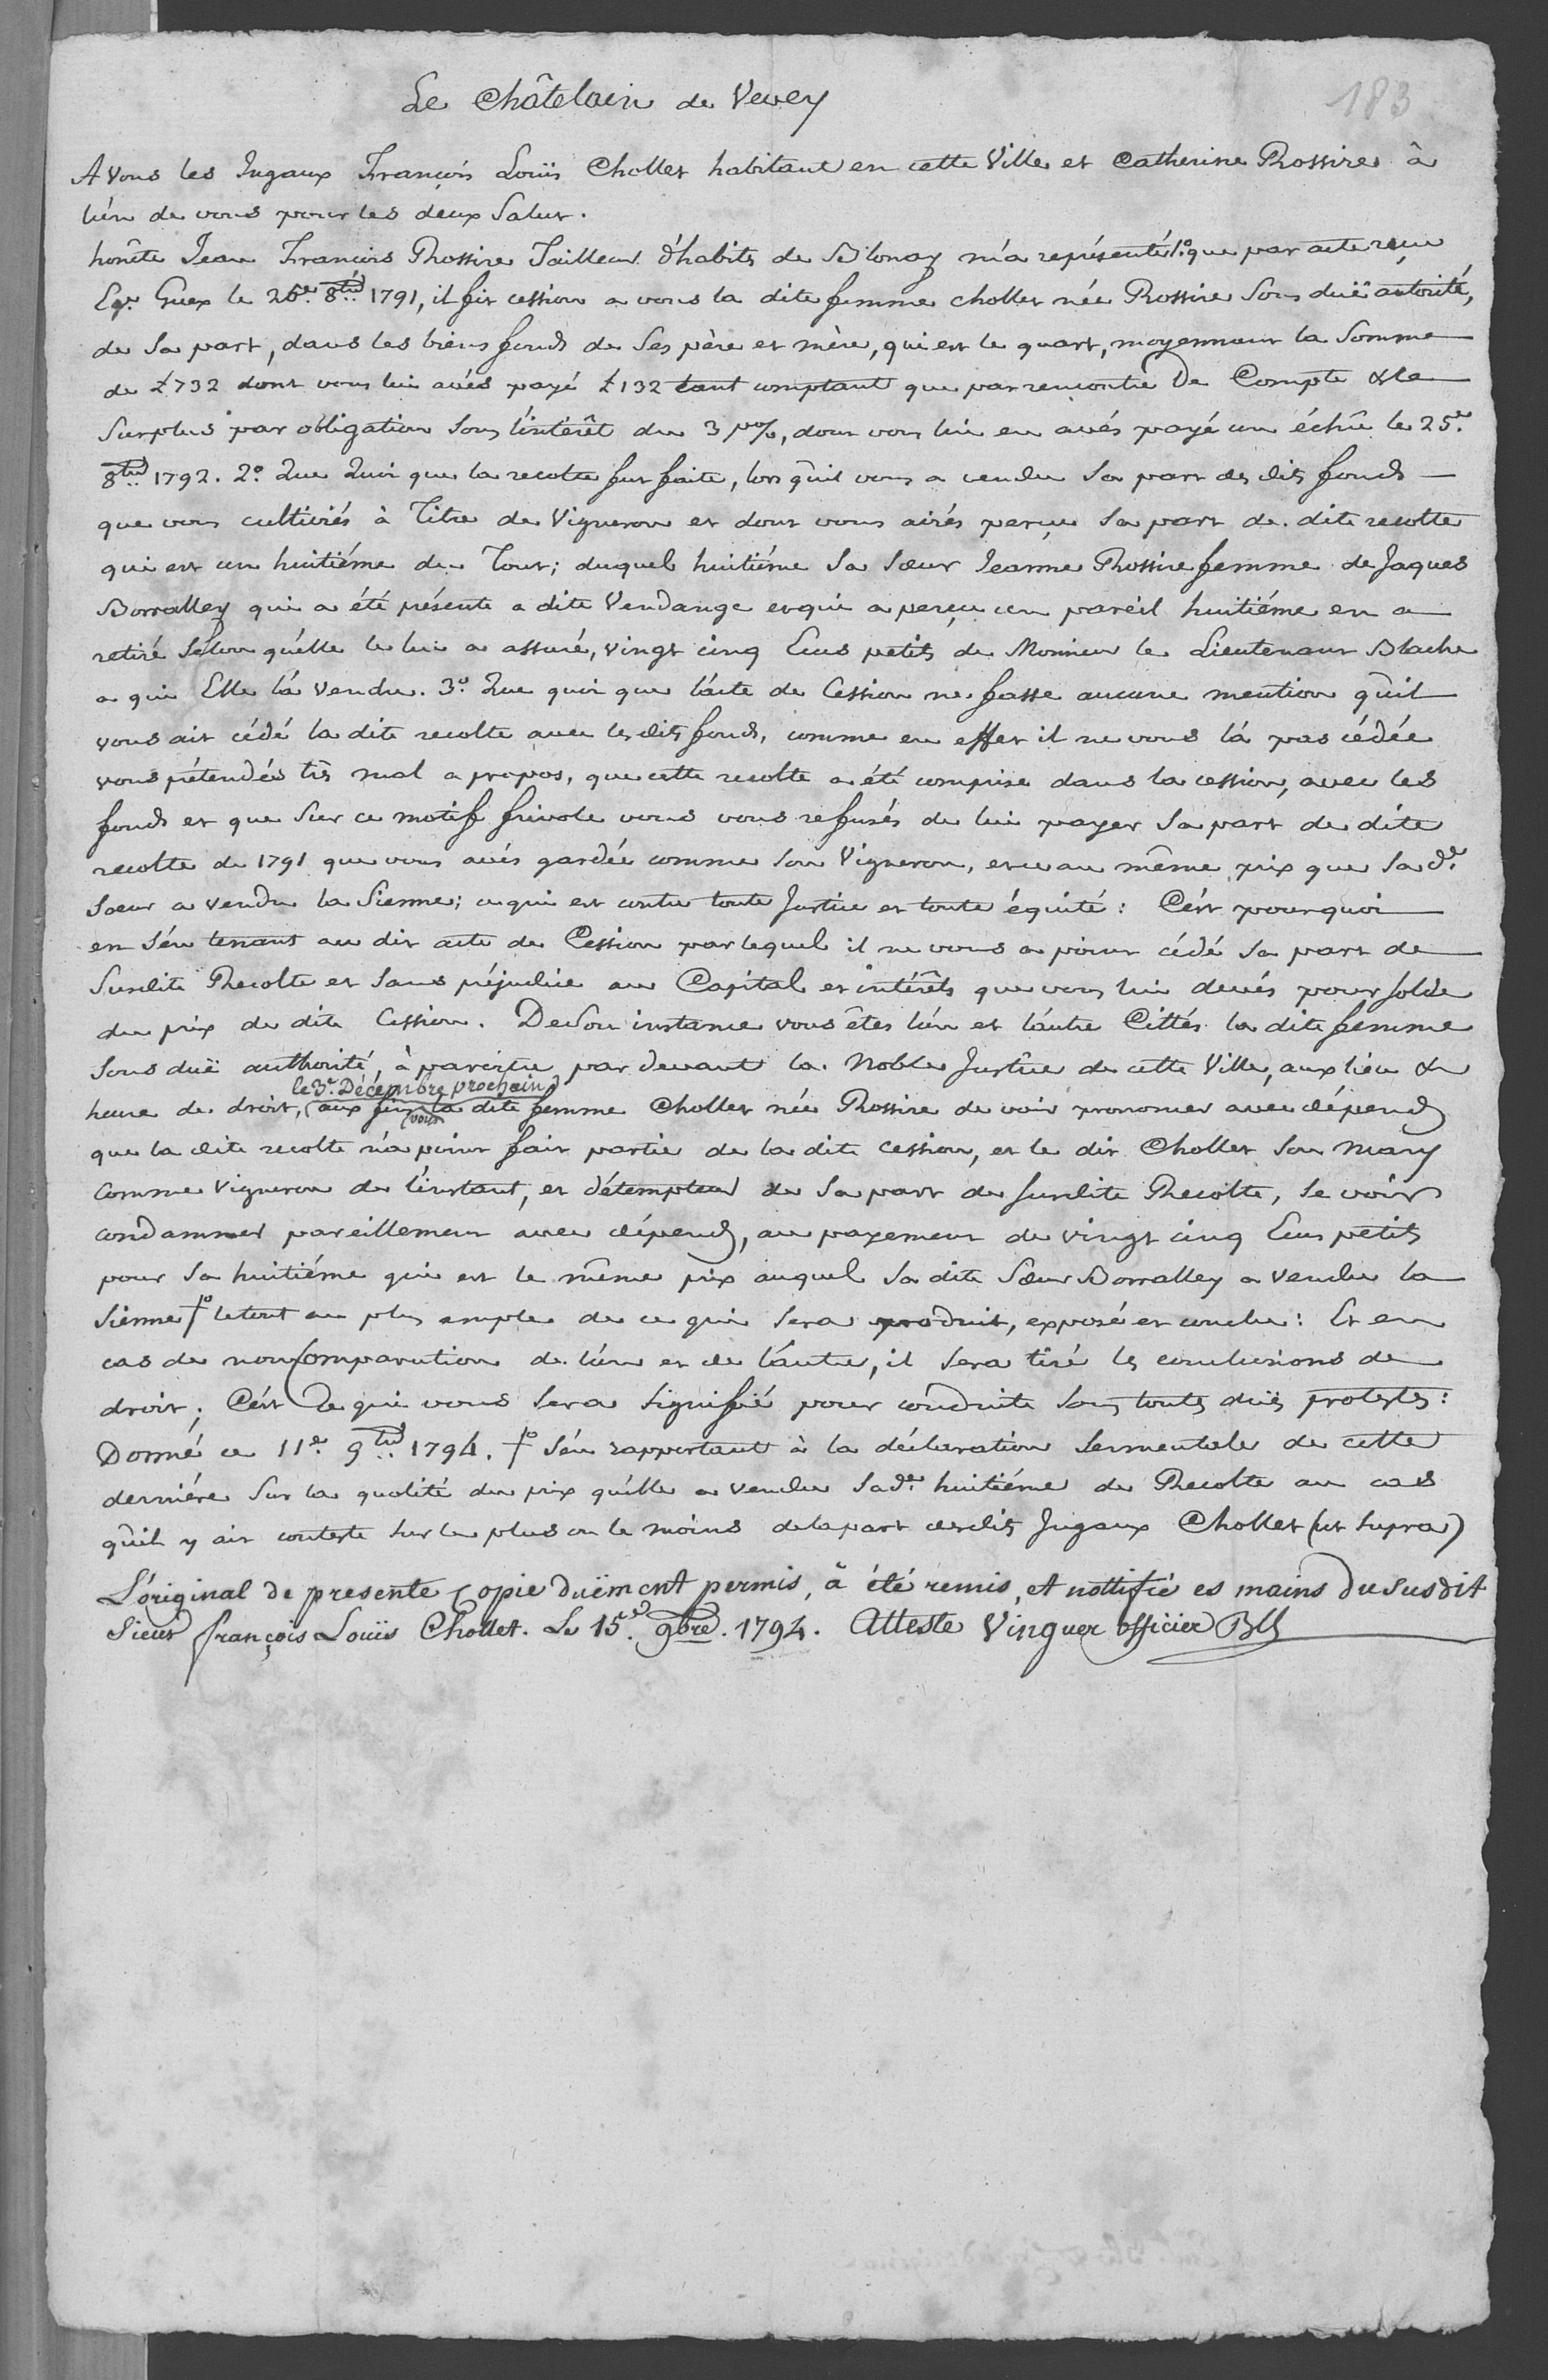 183
Le Châtelain de Vevey
A Vous les Jugaux François Louïs Chollet habitant en cette Ville et Catherine Rossire à
l'un de vous pour les deux Salut.
honête Jean François Rossire Tailleur d'habits de Blonay m'a représenté 1.° que par acte reçu
Eg.r Guex le 26.e 8.bre 1791, il fit cession a vous la dite femme chollet née Rossire Sous duë autorité,
de Sa part, dans les biens fonds de Ses père et mère, qui est le quart, moyennant la Somme
de £ 732 dont vous lui avés payé £ 132 tant comptant que par rencontre De Compte & le
Surplus par obligation Sous l'intérêt du 3 p%, dont vous lui en avés payé un échû le 25.e
8.bre 1792. 2.° Que Quoi que la recolte fut faite, lors qu'il vous a vendu Sa part des dits fonds
que vous cultiviés à Titre de Vigneron et dont vous avés perçu Sa part de dite recolte
qui est un huitiéme du Tout; duquel huitiéme Sa Sœur Jeanne Rossire femme de Jaques
Borralley qui a été présente a dite Vendange et qui a perçu un pareil huitiéme en a
retiré Selon qu'elle le lui a assuré, vingt cinq Ecus petits de Monsieur le Lieutenant Blache
a qui Elle l'a vendu. 3.° Que quoi que l'acte de Cession ne fasse aucune mention qu'il
vous ait cédé la dite recolte avec les dits fonds, comme en effet il ne vous l'a pas cédée
vous prétendés très mal a propos, que cette recolte a été comprise dans la cession, avec les
fonds et que Sur ce motif frivole vous vous refusés de lui payer Sa part de dite
recolte de 1791 que vous avés gardée comme Son Vigneron, et ce au même prix que Sa d.e
Soeur a vendu la Sienne; ce qui est contre toute Justice et toute équité: C'est pourquoi
en S'en tenant au dit acte de Cession par lequel il ne vous a point cédé Sa part de
Susdite Recolte et Sans préjudice au Capital et intérêts que vous lui devés pour Solde
du prix de dite Cession. De Son instance vous êtes l'un et l'autre Cittés la dite femme
Sous duë authorité, à paroitre par devant la Noble Justice de cette Ville, aux lieu &
le 3.e Décembre prochain
heure de droit, aux fins la dite femme Chollet née Rossire de voir prononcer avec dépends
vous
que la dite recolte n'a point fait partie de la dite cession, et le dit Chollet Son Mary
comme Vigneron de l'instant, et détempteur de Sa part de Susdite Recolte, Se voir
condamner pareillement avec dépends, au payement de vingt cinq Ecus petits
pour Sa huitiéme qui est le même prix auquel Sa dite Sœur Borralley a vendu la
Sienne †° le tout au plus ample de ce qui Sera produit, exposé et conclu: Et en
cas de non Comparution de l'un et de l'autre, il Sera tiré les conclusions de
droit; C'est Ce qui vous Sera Signifié pour conduite Sous toutes duës protestes:
Donné ce 11.e 9.bre 1794. †° S'en rapportant à la déclaration Sermentale de cette
derniére Sur la qualité du prix qu'elle a vendu Sa d.e huitiéme de Recolte au cas
qu'il y ait conteste Sur le plus ou le moins de la part desdits Jugaux Chollet (ut Supra)
L'original de presente Copie duëment permis, à été remis, et nottifié es mains du Susdit
Sieur françois Louïs Chollet. Le 15.e 9bre. 1794. Atteste Vinguer officier Bll